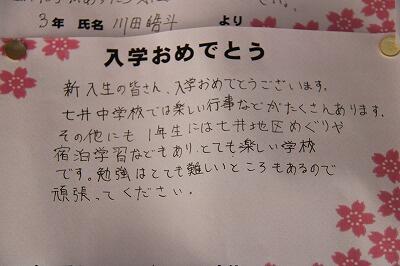 3年 氏名 川田皓斗 より
入学おめでとう
新入生の皆さん、入学おめでとうございます。
七井中学校では楽しい行事などがたくさんあります。
その他にも1年生には七井地区めぐりや
宿泊学習などもあり、とても楽しい学校
です。勉強はとても難しいところもあるので
頑張ってください。